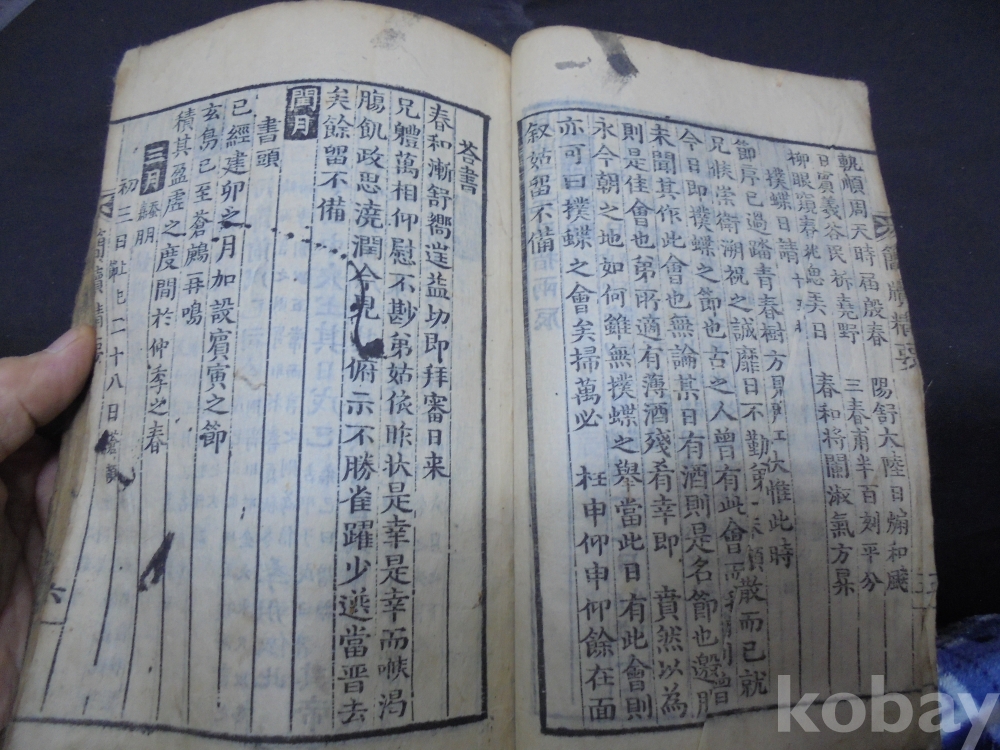 簡牘精要
軌順周天時届殷春 陽舒大陸日煽和飈
日賓羲谷民析堯野 三春甫半百刻平分
柳眼窺春花思美日 春和將闌淑氣方昇
撲蝶日請
節序已過踏青春樹方 伏惟此時
兄候崇衛溯祝之誠靡日不勤第 散而已就
今日即撲蝶之節也古之人曾有此會而
未聞其作此會也無論某日有酒則是名節也邀朋
則是佳會也弟所適有薄酒殘肴幸即 賁然以為
永今朝之地如何雖無撲蝶之舉當此日有此會則
亦可曰撲蝶之會矣掃萬必 枉申仰申仰餘在面
叙姑留不備
荅書
春和漸舒嚮逞益切即拜審日来
兄體萬相仰慰不尠弟姑依昨状是幸是幸而喉渴
膓飢政思澆潤今見 俯示不勝雀躍少選當晋去
矣餘留不備
閏月
書頭
已經建卯之月加設賓寅之節
玄鳥已至蒼鷉再鳴
積其盈虚之度間於仲季之春
三月 朋
初三日 二十八日
六
kobay